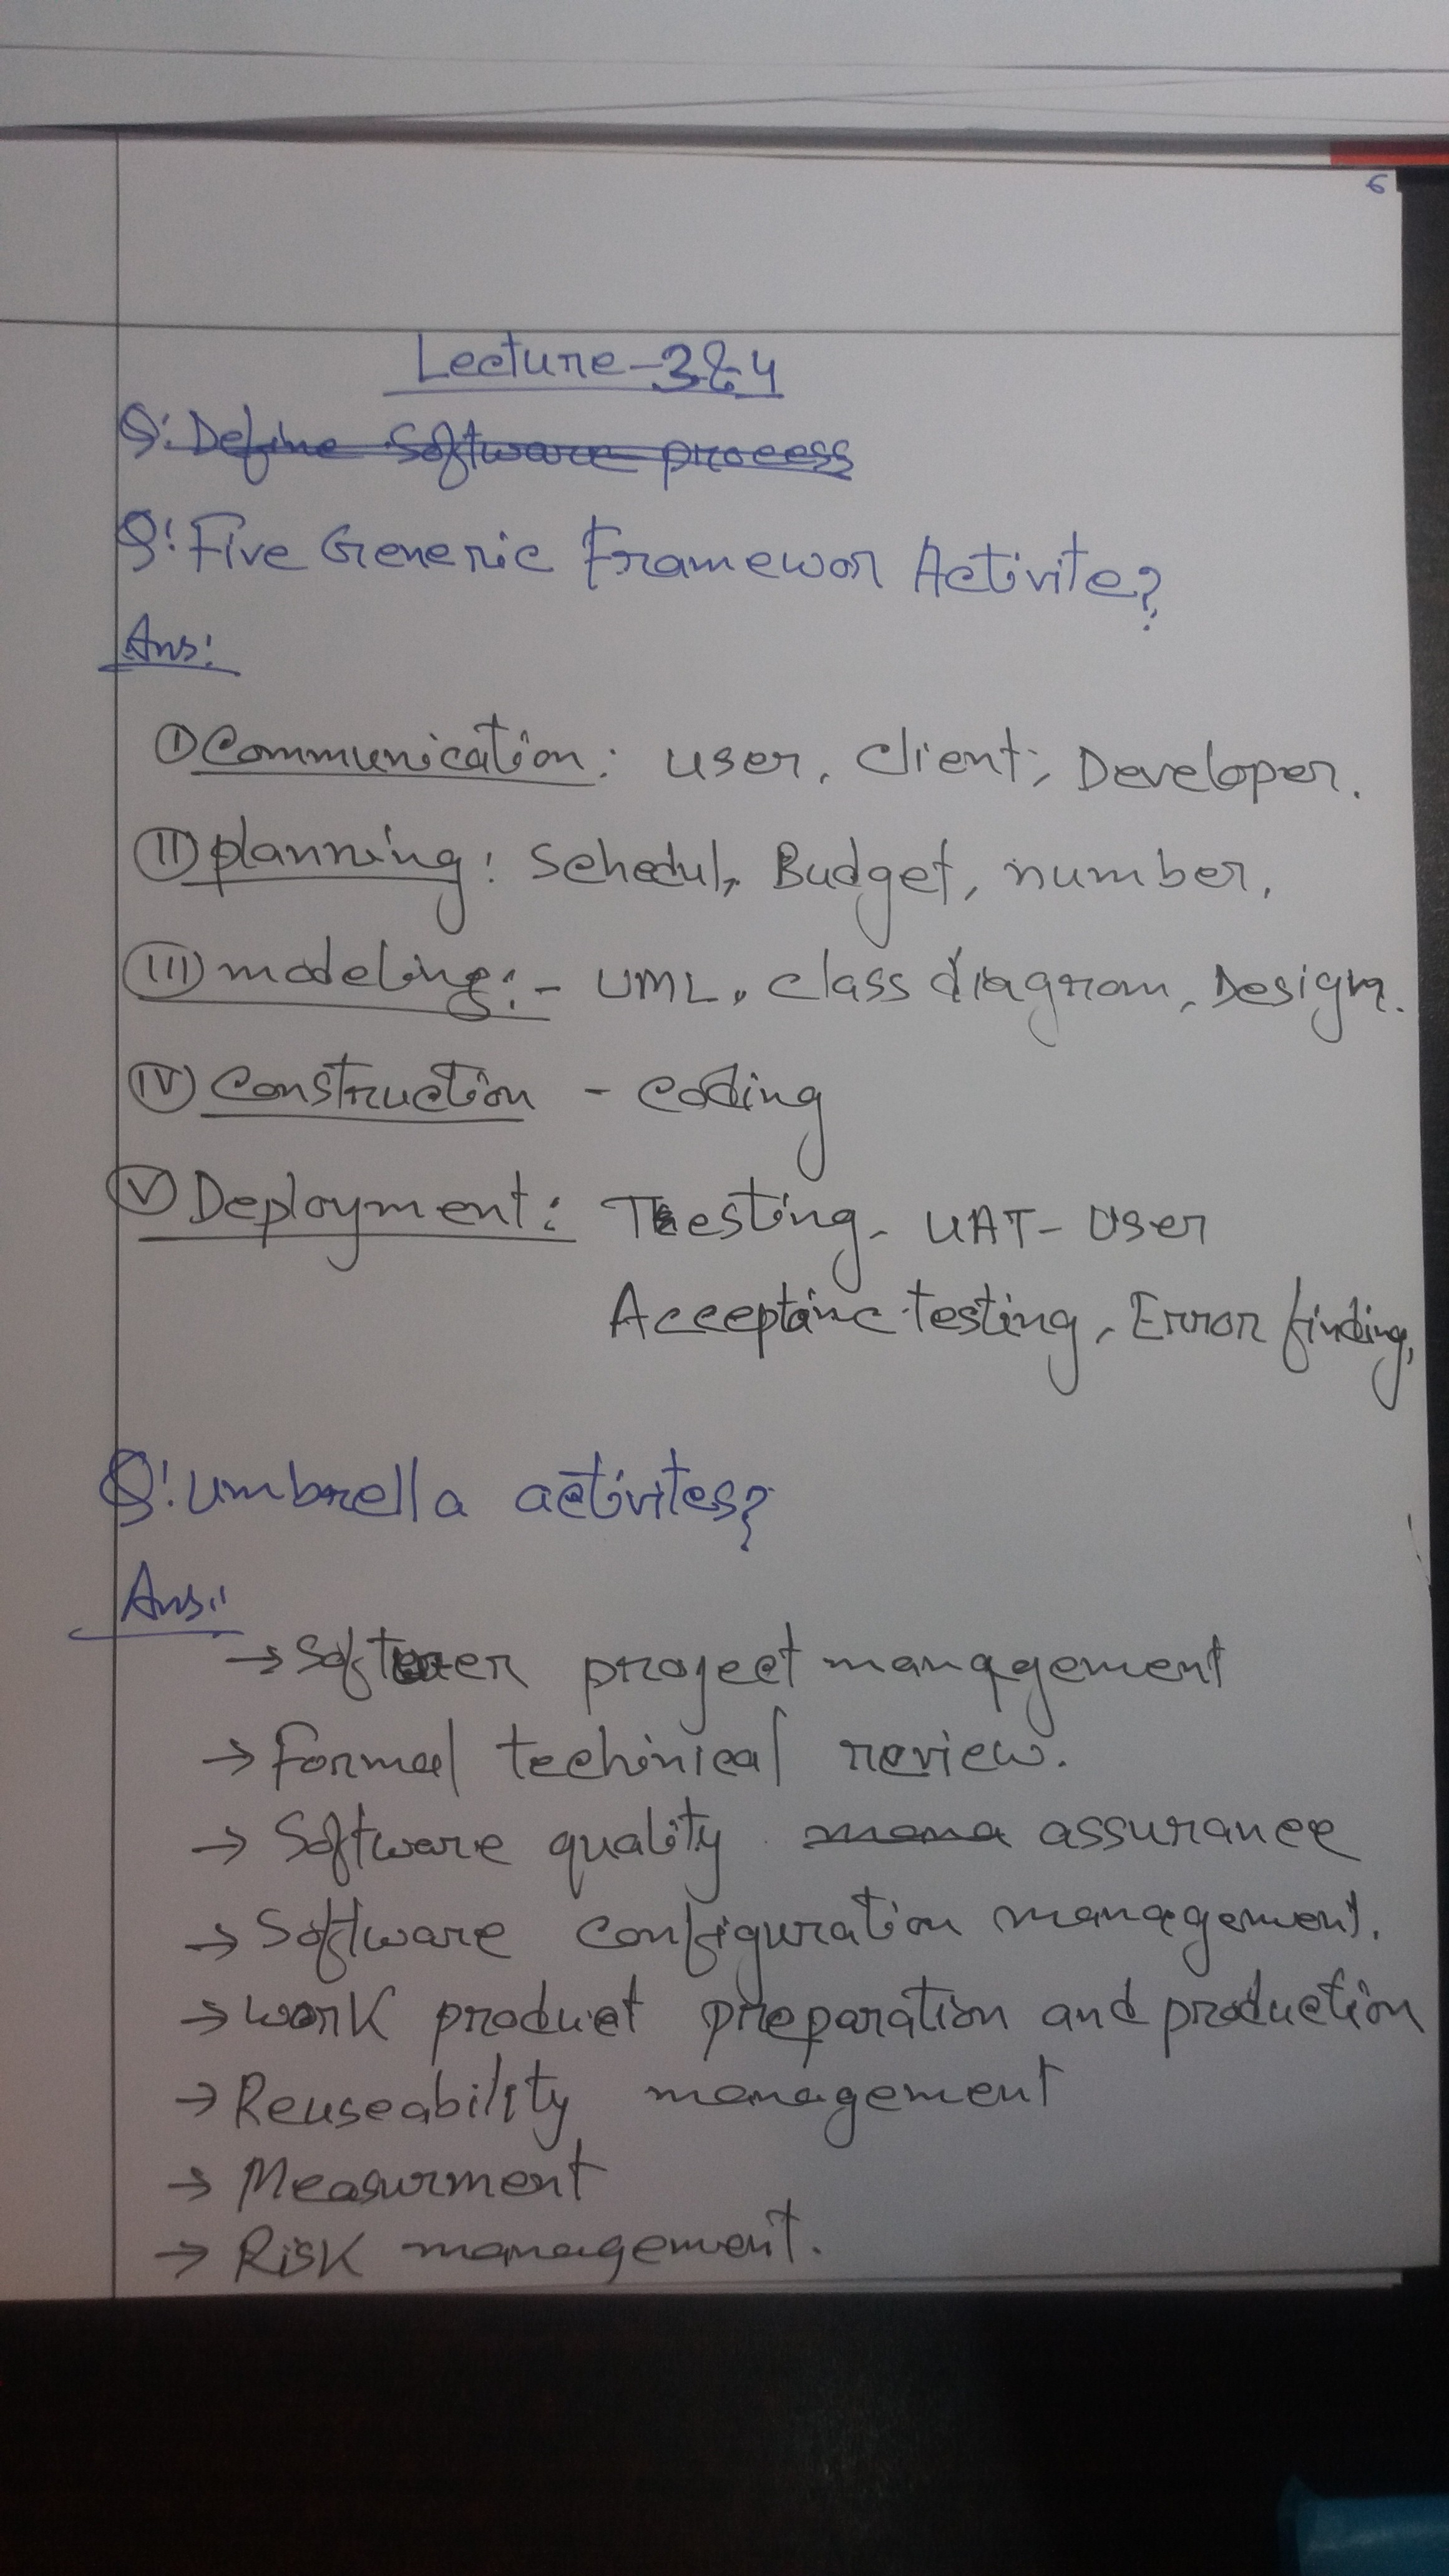 6
Lecture-3&4
Q: Define Software process
Q: Five Generic Framewor Activite?
Ans:
I Communication: user, Client, Developer.
II planning: Schedul, Budget, number,
III modeling:- UML, class diagram, Design.
IV Construction - coding
V Deployment: Testing, UAT- User
Acceptainc testing, Error finding,
Q: Umbrella activites?
Ans:
→ Softwer project management
→ Formal techinical review.
→ Software quality mana assurance
→ Software configuration management.
→ work product preparation and production
→ Reuseability management
→ Measurment
→ Risk management.